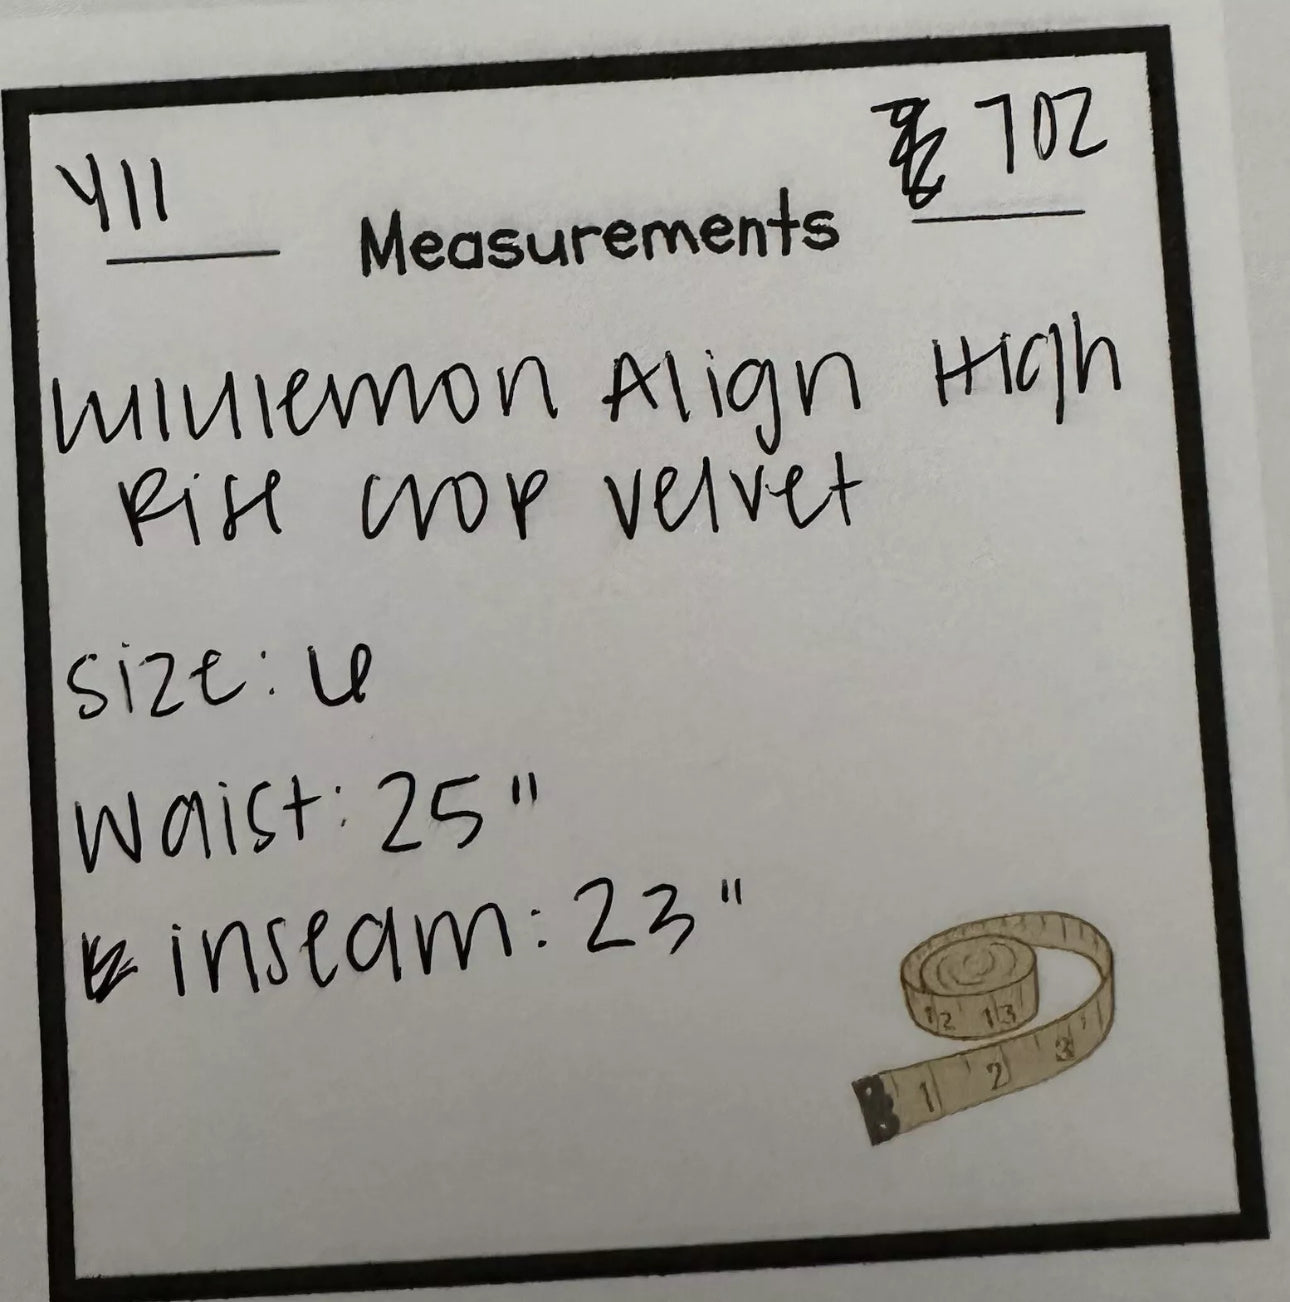 411
702
Measurements
lululemon Align High
Rise crop velvet
size: 6
waist: 25"
inseam: 23"
12 13
1 2 3